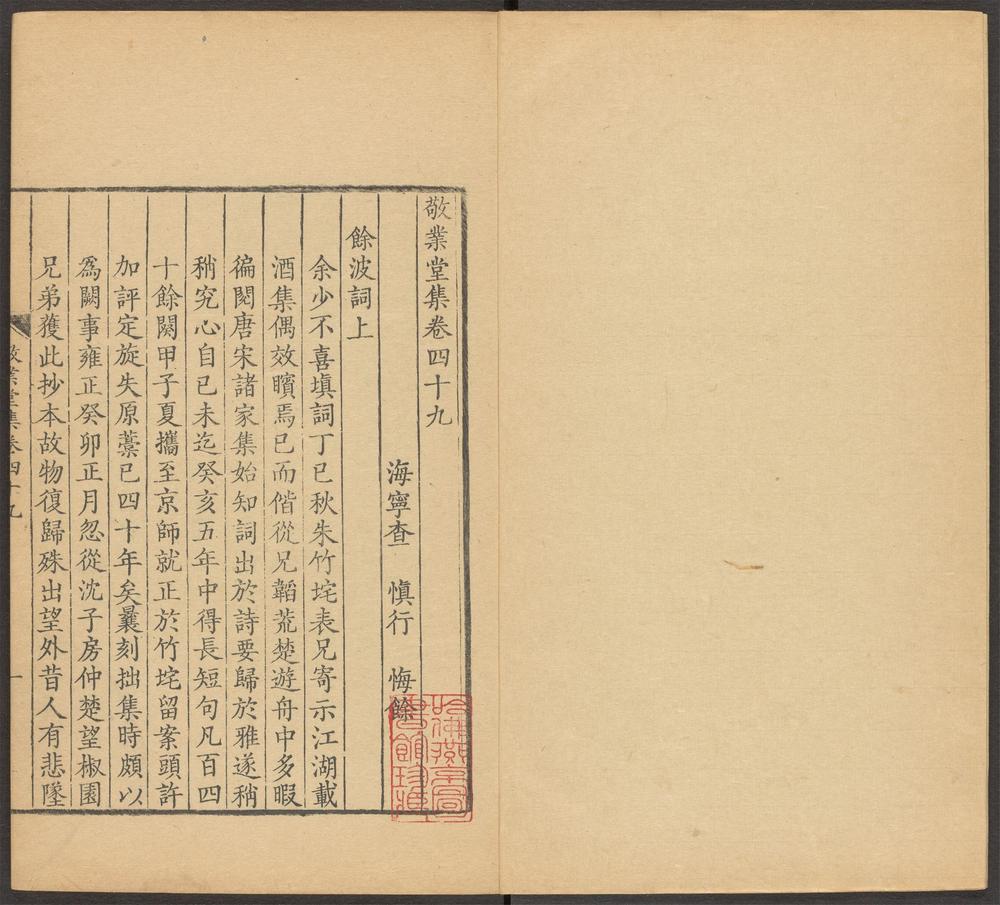 敬業堂集卷四十九
海寧查 慎行 悔餘
餘波詞上
余少不喜塡詞丁巳秋朱竹垞表兄寄示江湖載
酒集偶效矉焉已而偕從兄韜荒楚遊舟中多暇
徧閱唐宋諸家集始知詞出於詩要歸於雅遂稍
稍究心自己未迄癸亥五年中得長短句凡百四
十餘闋甲子夏攜至京師就正於竹垞留案頭許
加評定旋失原藁已四十年矣曩刻拙集時頗以
爲闕事雍正癸卯正月忽從沈子房仲楚望椒園
兄弟獲此抄本故物復歸殊出望外昔人有悲墜
敬業堂集卷四十九
一
哈佛燕京圖
書館珍藏